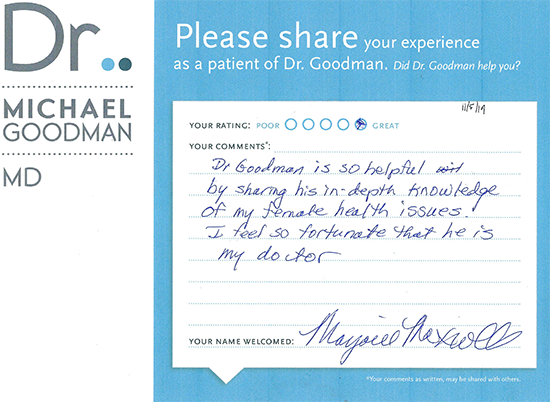 Dr..
MICHAEL
GOODMAN
MD
Please share your experience
as a patient of Dr. Goodman. Did Dr. Goodman help you?
11/5/19
YOUR RATING: POOR GREAT
YOUR COMMENTS*:
Dr Goodman is so helpful
by sharing his in-depth knowledge
of my female health issues.
I feel so fortunate that he is
my doctor
YOUR NAME WELCOMED: Marjorie Maxwell
*Your comments as written, may be shared with others.